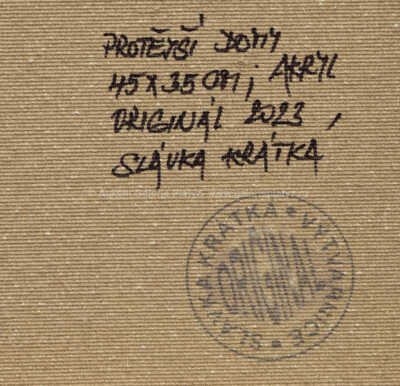 PROTĚJŠÍ DOMY
45x35 cm, AKRYL
ORIGINÁL 2023,
SLÁVKA KRÁTKÁ
SLÁVKA KRÁTKÁ • VÝTVARNICE •
ORIGINAL